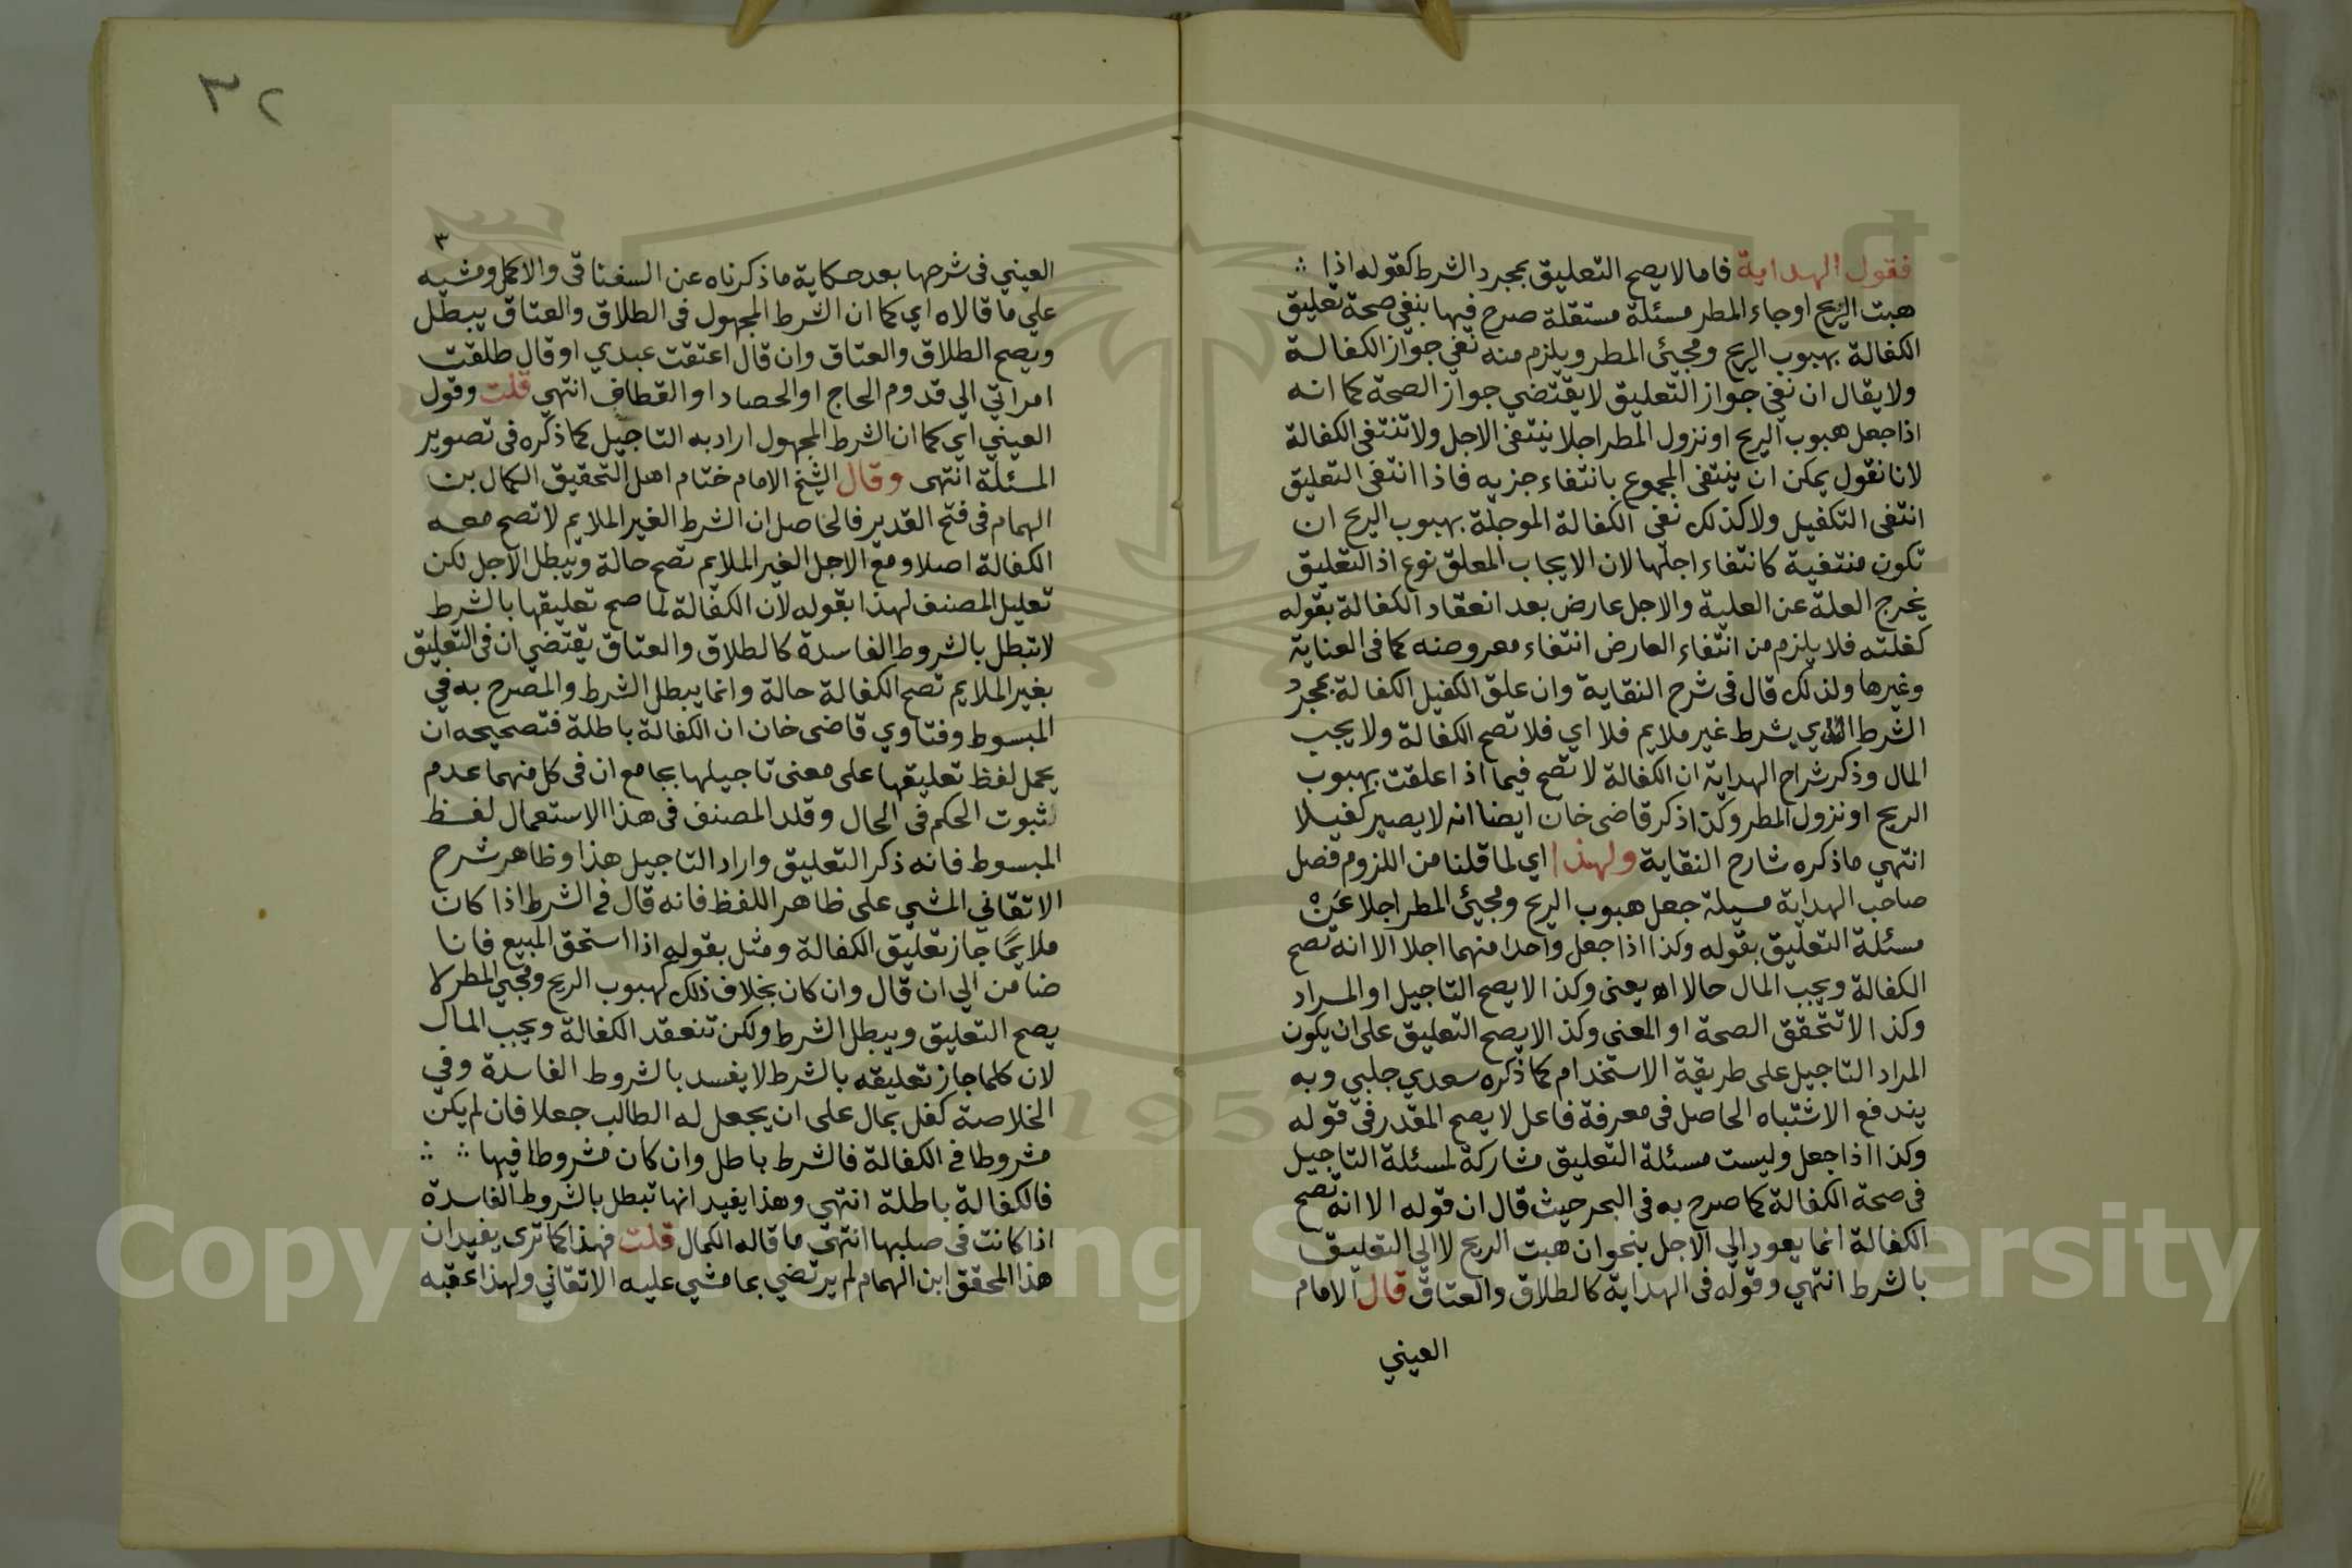 فقول الهداية فاما لا يصح التعليق بمجرد الشرط كقوله اذا
هبت الريح او جاء المطر مسئلة مستقلة صرح فيها بنفى صحة تعليق
الكفالة بهبوب الريح ومجيئ المطر ويلزم منه نفي جواز الكفالة
ولا يقال ان نفي جواز التعليق لا يقتضي جواز الصحة كما انه
اذا جعل هبوب الريح او نزول المطر اجلا ينتفى الاجل ولا تنتفى الكفالة
لانا نقول يمكن ان ينتفى المجموع بانتفاء جزيه فاذا انتفى التعليق
انتفى التكفيل ولا كذلك نفي الكفالة الموجلة بهبوب الريح ان
تكون منتفية كانتفاء اجلها لان الايجاب المعلق نوع اذ التعليق
يخرج العلة عن العلية والاجل عارض بعد انعقاد الكفالة بقوله
كفلته فلا يلزم من انتفاء العارض انتفاء معروضه كما فى العناية
وغيرها ولذلك قال فى شرح النقاية وان علق الكفيل الكفالة بمجرد
الشرط الذي بشرط غير ملايم فلا اي فلا تصح الكفالة ولا يجب
المال وذكر شراح الهداية ان الكفالة لا تصح فيما اذا علقت بهبوب
الريح او نزول المطر وكذا ذكر قاضى خان ايضا انه لا يصير كفيلا
انتهي ما ذكره شارح النقاية ولهذا اي لما قلنا من اللزوم فصل
صاحب الهداية مسيلة جعل هبوب الريح ومجيئ المطر اجلا عن
مسئلة التعليق بقوله وكذا اذا جعل واحدا منهما اجلا الا انه تصح
الكفالة ويجب المال حالا اه يعنى وكذا لا يصح التاجيل او المراد
وكذا لا تتحقق الصحة او المعنى وكذا لا يصح التعليق على ان يكون
المراد التاجيل على طريقة الاستخدام كما ذكره سعدي جلبي وبه
يندفع الاشتباه الحاصل فى معرفة فاعل لا يصح المقدر فى قوله
وكذا اذا جعل وليست مسئلة التعليق مشاركة لمسئلة التاجيل
فى صحة الكفالة كما صرح به فى البحر حيث قال ان قوله الا انه تصح
الكفالة انما يعود الي الاجل بنحو ان هبت الريح لا الى التعليق
بالشرط انتهي وقوله فى الهداية كالطلاق والعتاق قال الامام
العيني
٣٢
٣
العيني فى شرحها بعد حكاية ما ذكرناه عن السغناقى والاكمل ومشيه
علي ما قالاه اي كما ان الشرط المجهول فى الطلاق والعتاق يبطل
ويصح الطلاق والعتاق وان قال اعتقت عبدي او قال طلقت
امراتي الي قدوم الحاج او الحصاد او القطاف انتهي قلت وقول
العيني اي كما ان الشرط المجهول اراد به التاجيل كما ذكره فى تصوير
المسئلة انتهى وقال الشيخ الامام ختام اهل التحقيق الكمال بن
الهمام فى فتح القدير فالحاصل ان الشرط الغير الملايم لا تصح معه
الكفالة اصلا ومع الاجل الغير الملايم تصح حالة ويبطل الاجل لكن
تعليل المصنف لهذا بقوله لان الكفالة لما صح تعليقها بالشرط
لا تبطل بالشروط الفاسدة كالطلاق والعتاق يقتضي ان فى التعليق
بغير الملايم تصح الكفالة حالة وانما يبطل الشرط والمصرح به في
المبسوط وفتاوي قاضى خان ان الكفالة باطلة فتصحيحه ان
يحمل لفظ تعليقها على معنى تاجيلها بجامع ان فى كل منهما عدم
ثبوت الحكم فى الحال وقلد المصنف فى هذا الاستعمال لفظ
المبسوط فانه ذكر التعليق واراد التاجيل هذا وظاهر شرح
الاتقاني المشي على ظاهر اللفظ فانه قال فى الشرط اذا كان
ملايمًا جاز تعليق الكفالة ومثل بقوله اذا استحق المبيع فانا
ضامن الي ان قال وان كان بخلاف ذلك كهبوب الريح ومجيئ المطر لا
يصح التعليق ويبطل الشرط ولكن تنعقد الكفالة ويجب المال
لان كلما جاز تعليقه بالشرط لا يفسد بالشروط الفاسدة وفي
الخلاصة كفل بمال على ان يجعل له الطالب جعلا فان لم يكن
مشروطا فى الكفالة فالشرط باطل وان كان مشروطا فيها
فالكفالة باطلة انتهي وهذا يفيد انها تبطل بالشروط الفاسدة
اذا كانت فى صلبها انتهى ما قاله الكمال قلت فهذا كما ترى يفيد ان
هذا المحقق ابن الهمام لم يرتضي بما مشي عليه الاتقاني ولهذا عقبه
Copyright © King Saud University
1957